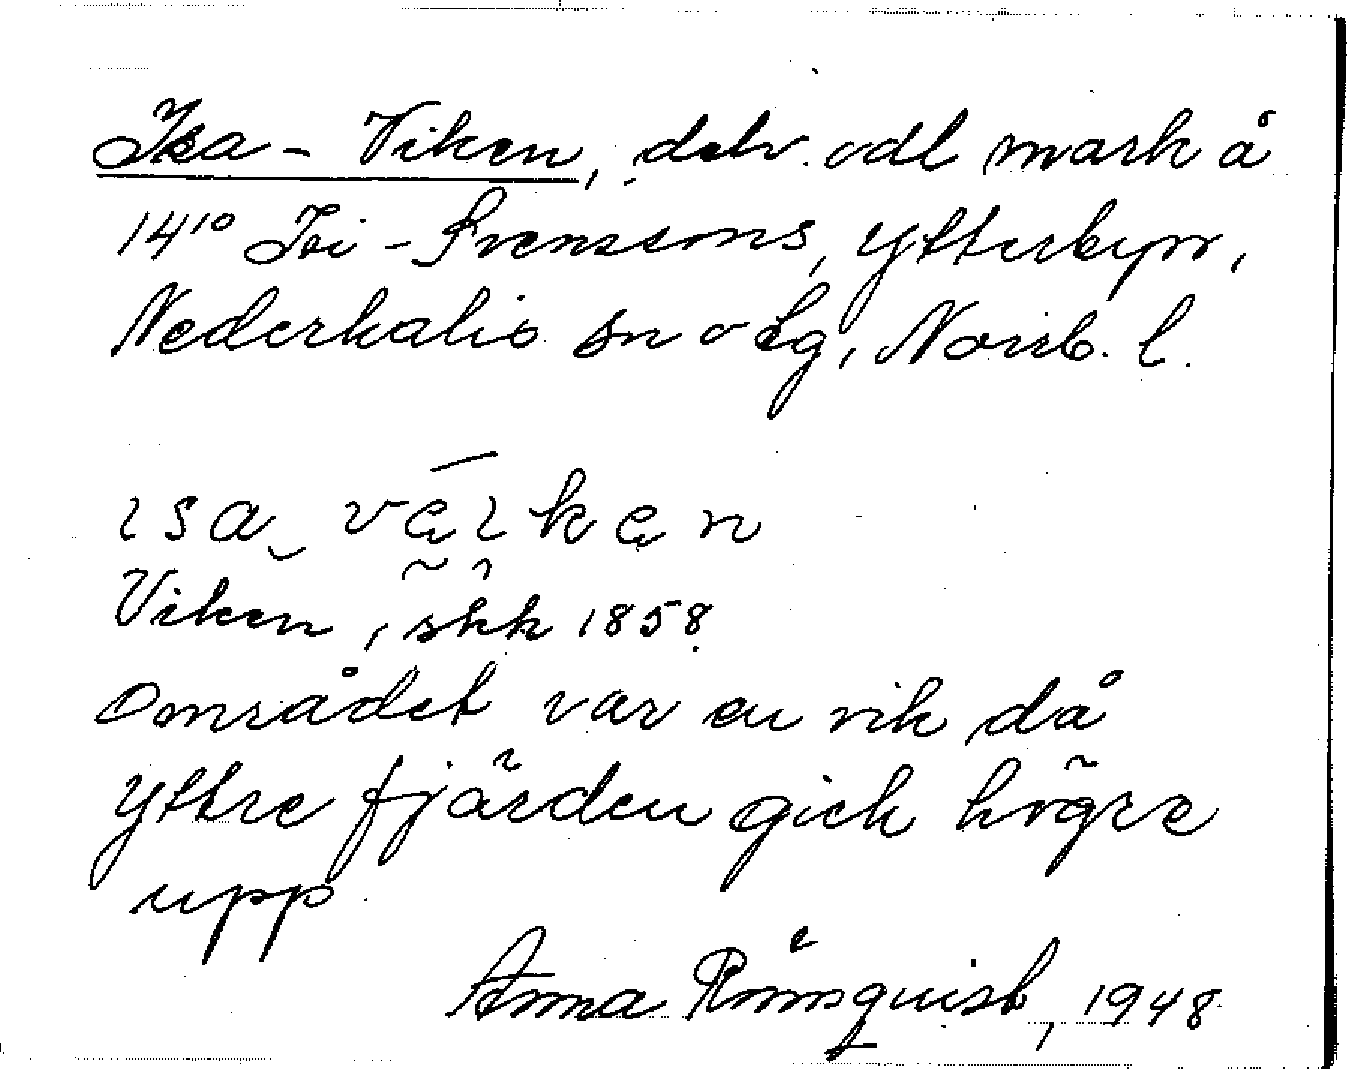 Isa-Viken, delv. odl mark å
14¹⁰ Isi-Svenssons, Ytterbyn,
Nederkalix sn o tg, Norrb. l.
ısa väıkän
Viken, skk 1858.
Området var en vik då
Yttre fjärden gick högre
upp.
Anna Rönnquist, 1948